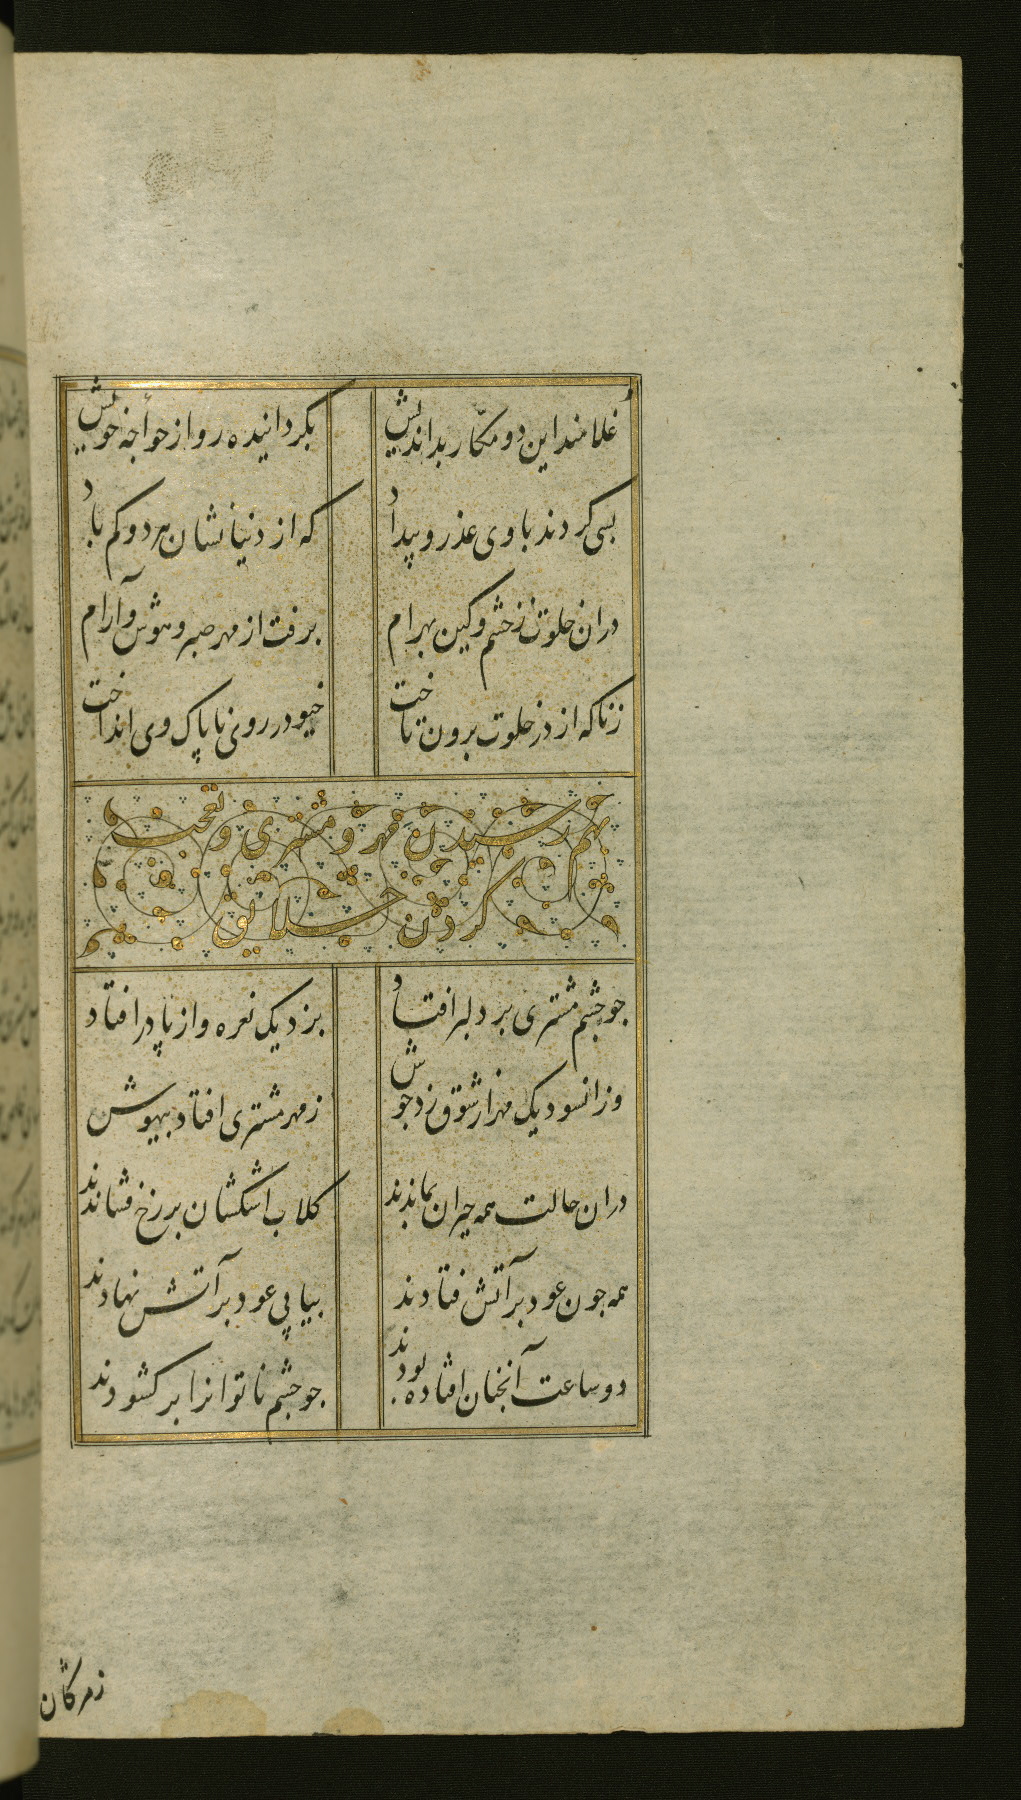 غلامند این دو مکّار بداندیش بکردانیده رو از خواجه خویش
بسی کردند باوی عذر و بیداد که از دنیا نشان هر دو کم باد
دران خلوت ز خشم و کین بهرام برفت از مهر صبر و هوش و آرام
ز ناکه از در خلوت برون تاخت خیو در روی ناپاک وی انداخت
بهم رسیدن مهر و مشتری و تعجب
کردن خلایق
جو جشم مشتری بر دلبر افتاد بزد یک نعره و از پا در افتاد
وزانسو دیک مهر از شوق زد جوش ز مهر مشتری افتاد بیهوش
دران حالت همه حیران بماندند کلاب اشکشان بر رخ فشاندند
همه جون عود بر آتش فتادند بیاپی عود بر آتش نهادند
دو ساعت آنجنان افتاده بودند جو جشم ناتوانرا بر کشودند
ز مژکان